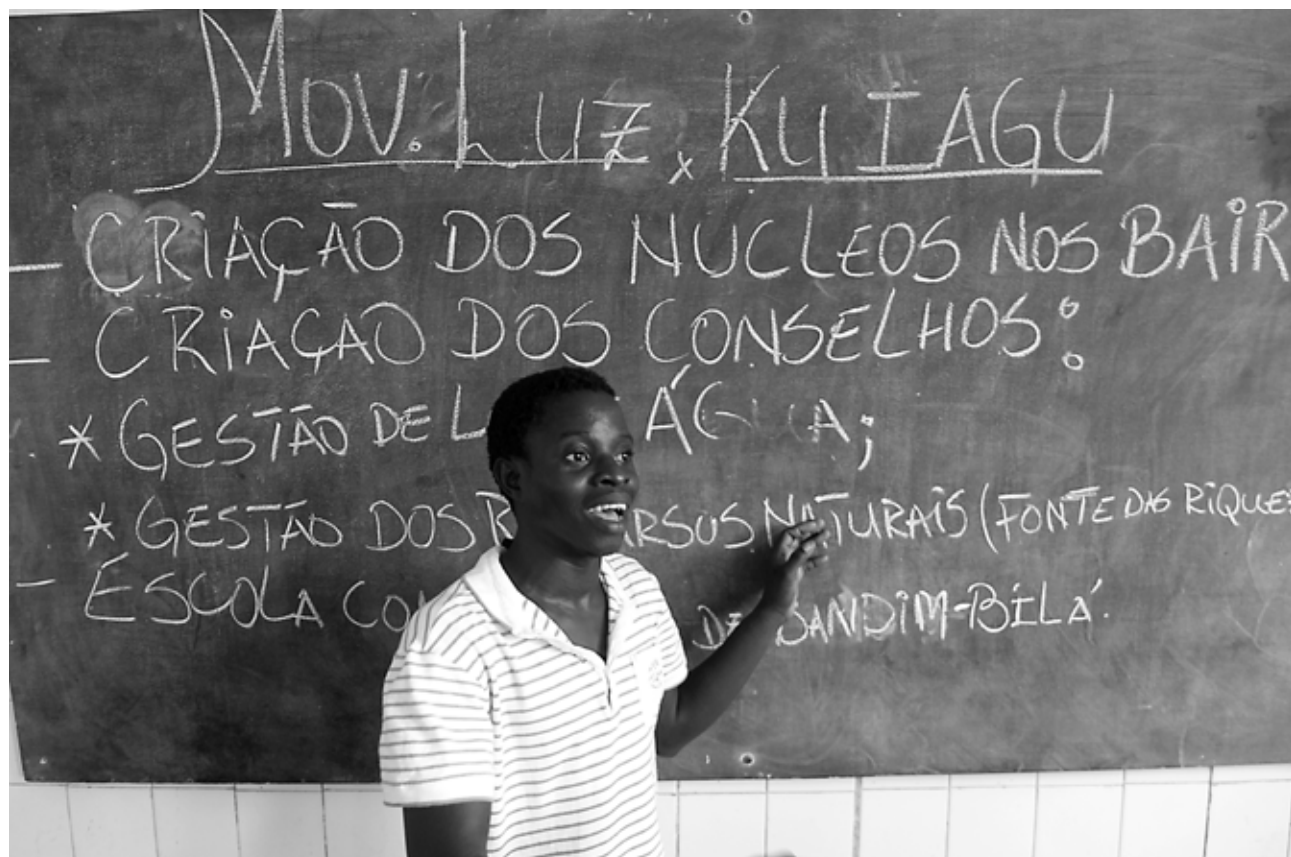 MOV. LUZ, KU IAGU
- CRIAÇÃO DOS NUCLEOS NOS BAIR
- CRIAÇAO DOS CONSELHOS:
* GESTÃO DE ÁGUA;
* GESTÃO DOS NATURAIS (FONTE DAS RIQUES
- ESCOLA DE BANDIM-BILÁ.